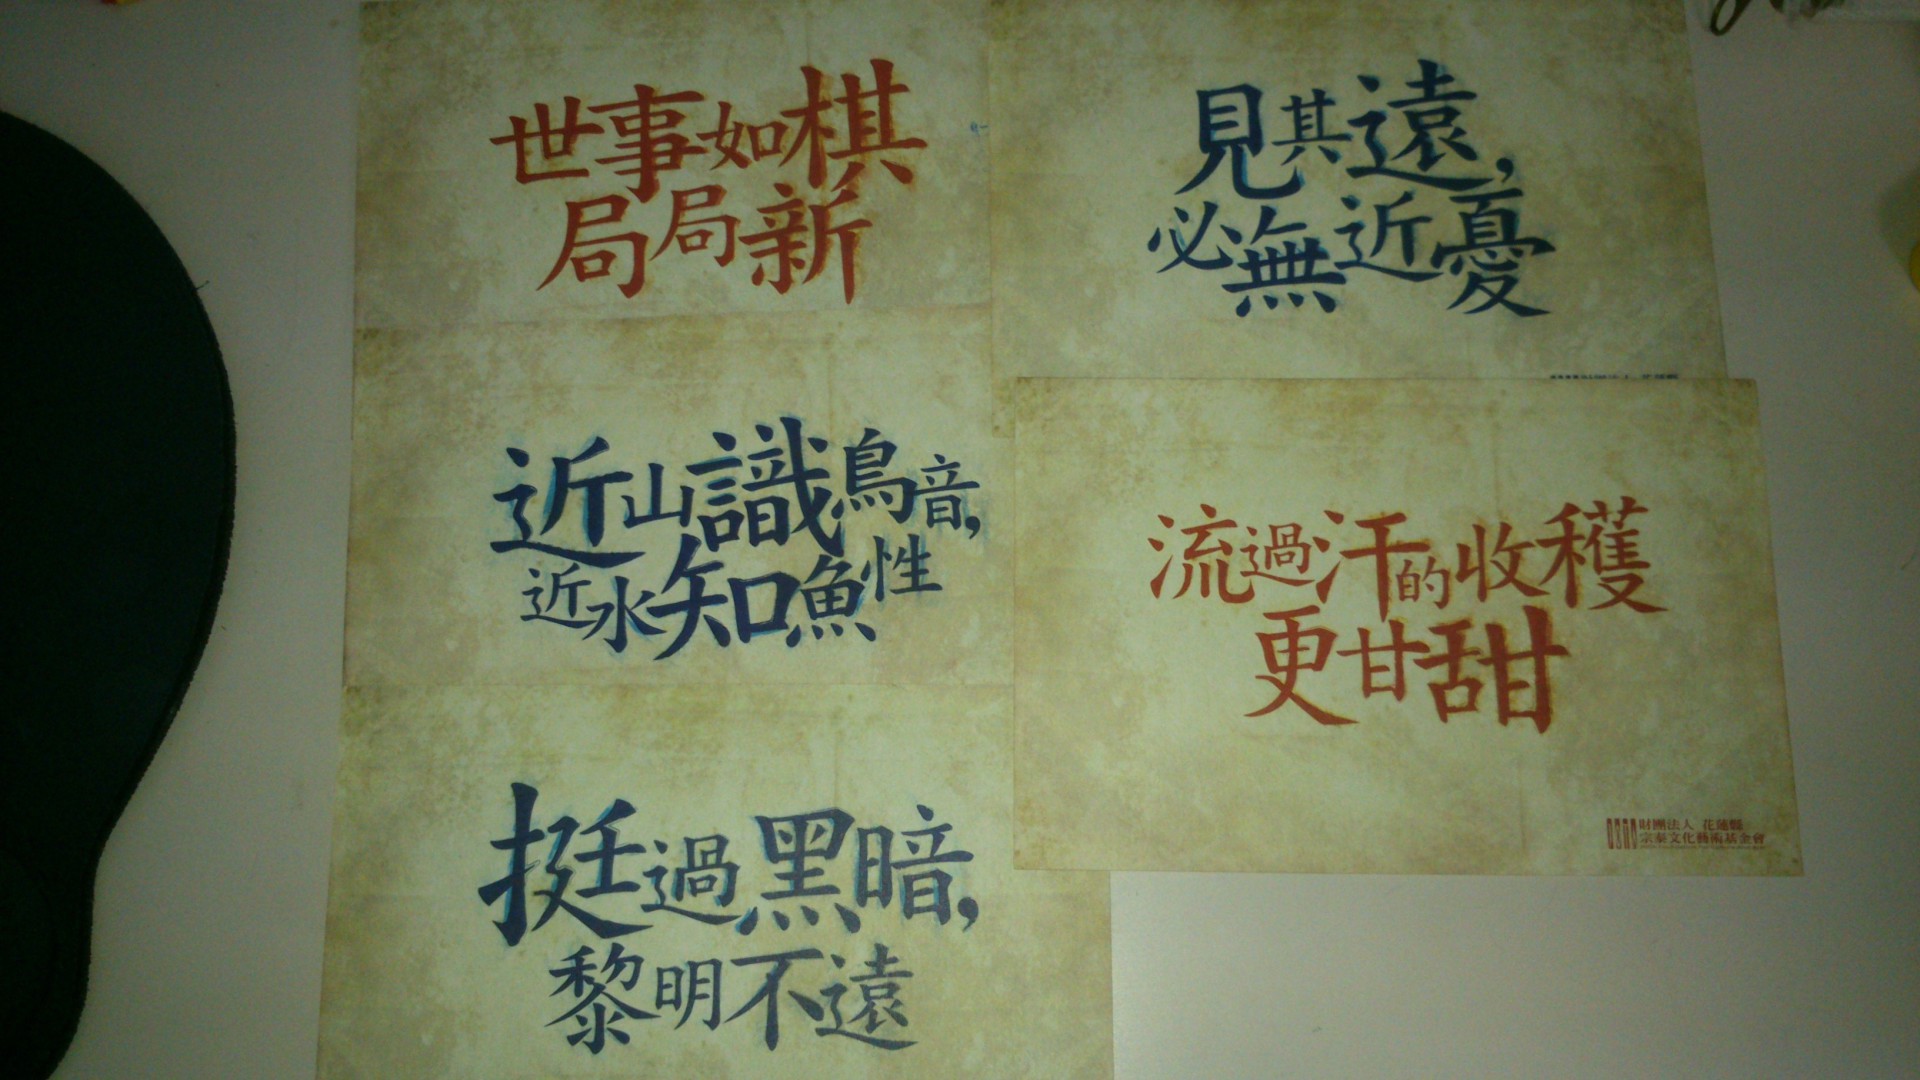 世事如棋
局局新
見其遠,
必無近憂
近山識鳥音,
近水知魚性
流過汗的收穫
更甘甜
財團法人 花蓮縣
宗泰文化藝術基金會
挺過黑暗,
黎明不遠